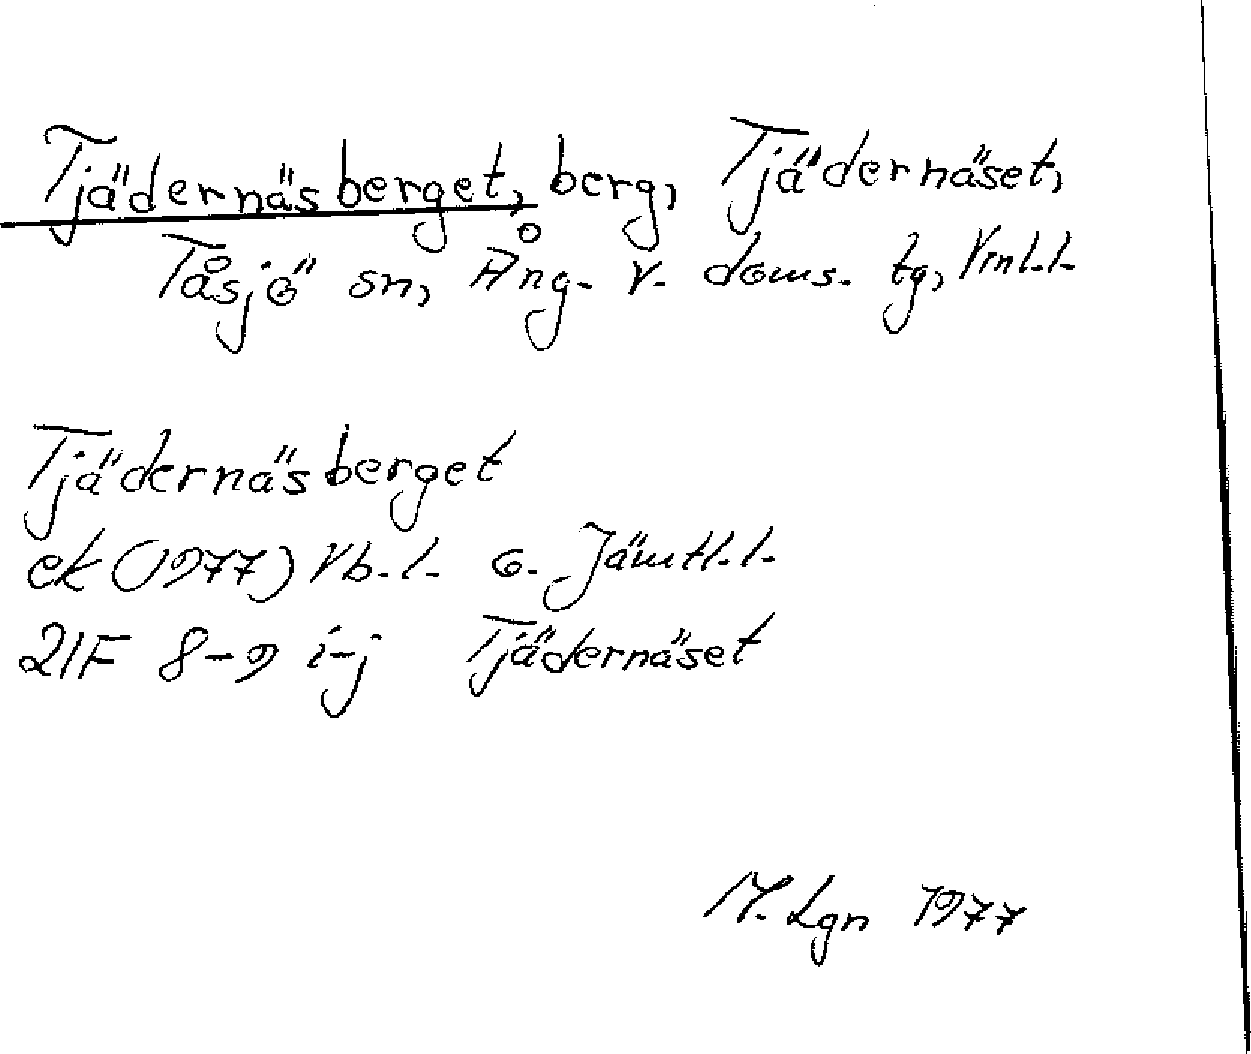 Tjädernäsberget, berg, Tjädernäset,
Tåsjö sn, Ång. v. doms. tg, Vrnl.l.
Tjädernäsberget
ek (1977) Vb.l. o. Jämtl.l.
21F 8-9 i-j Tjädernäset
M. Lgn 1977